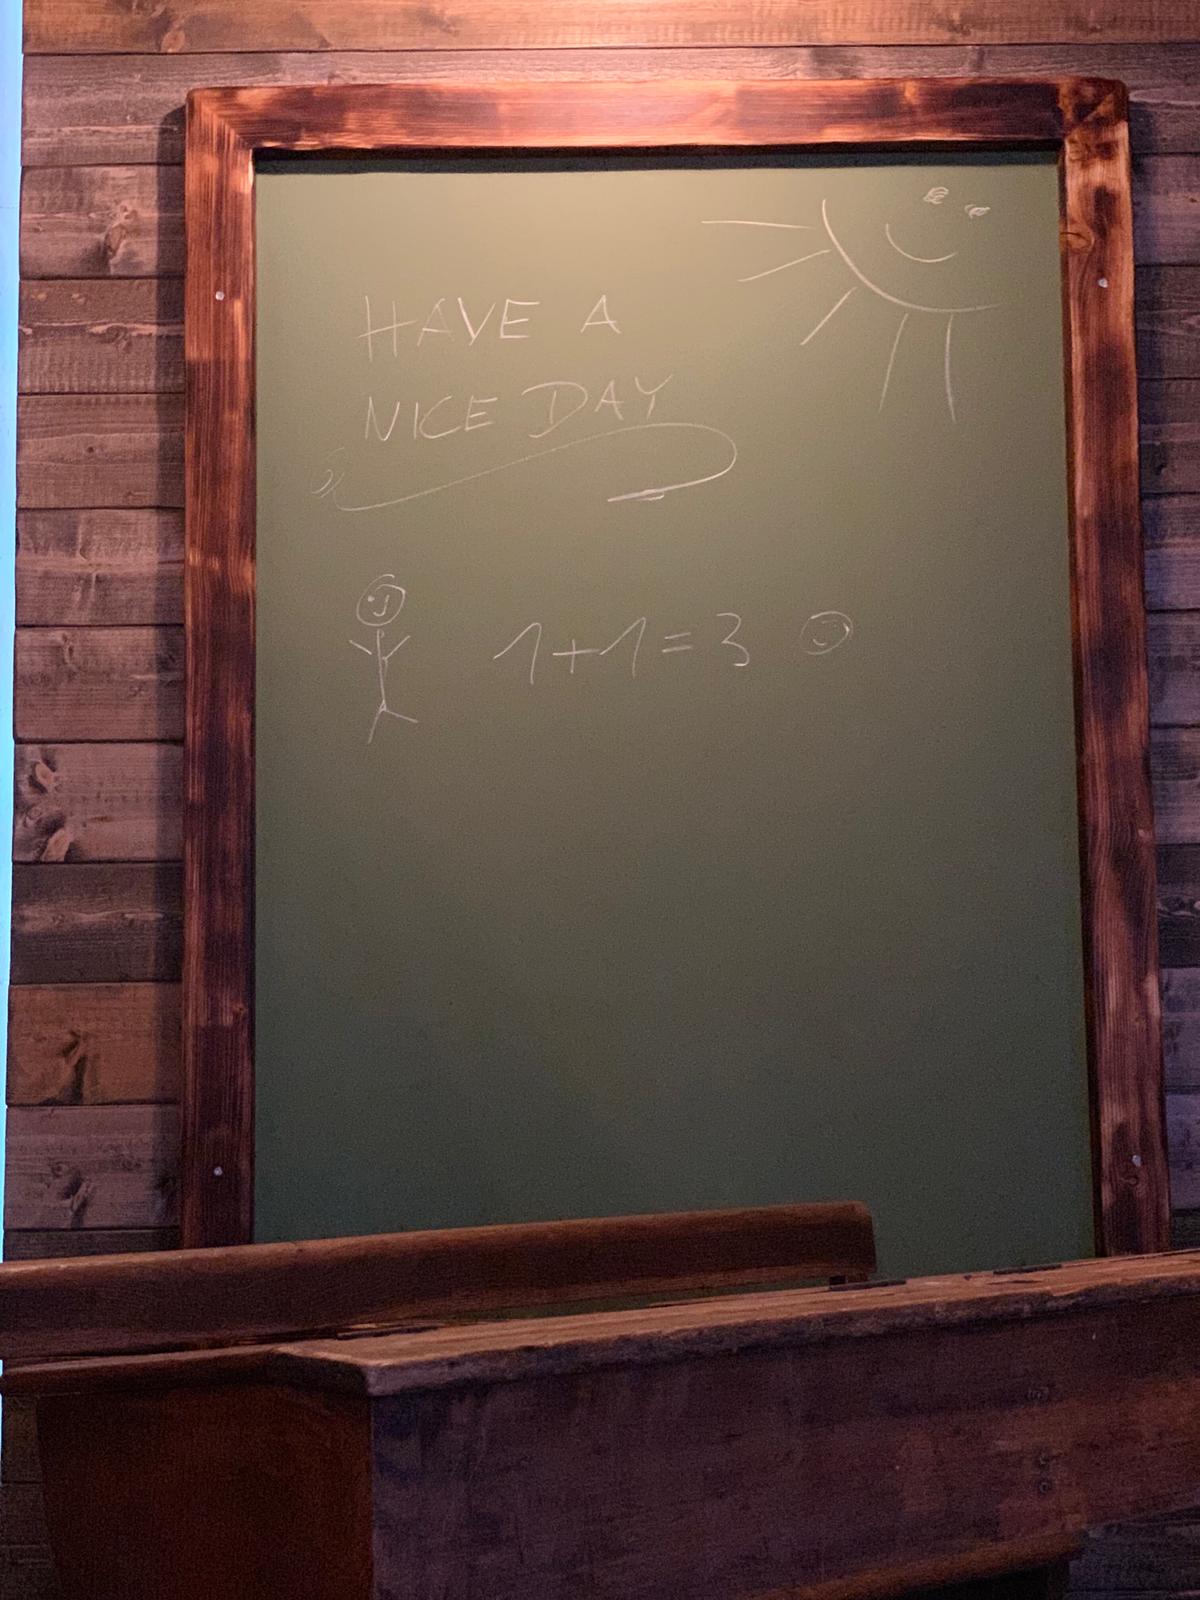 HAVE A
NICE DAY
1+1=3